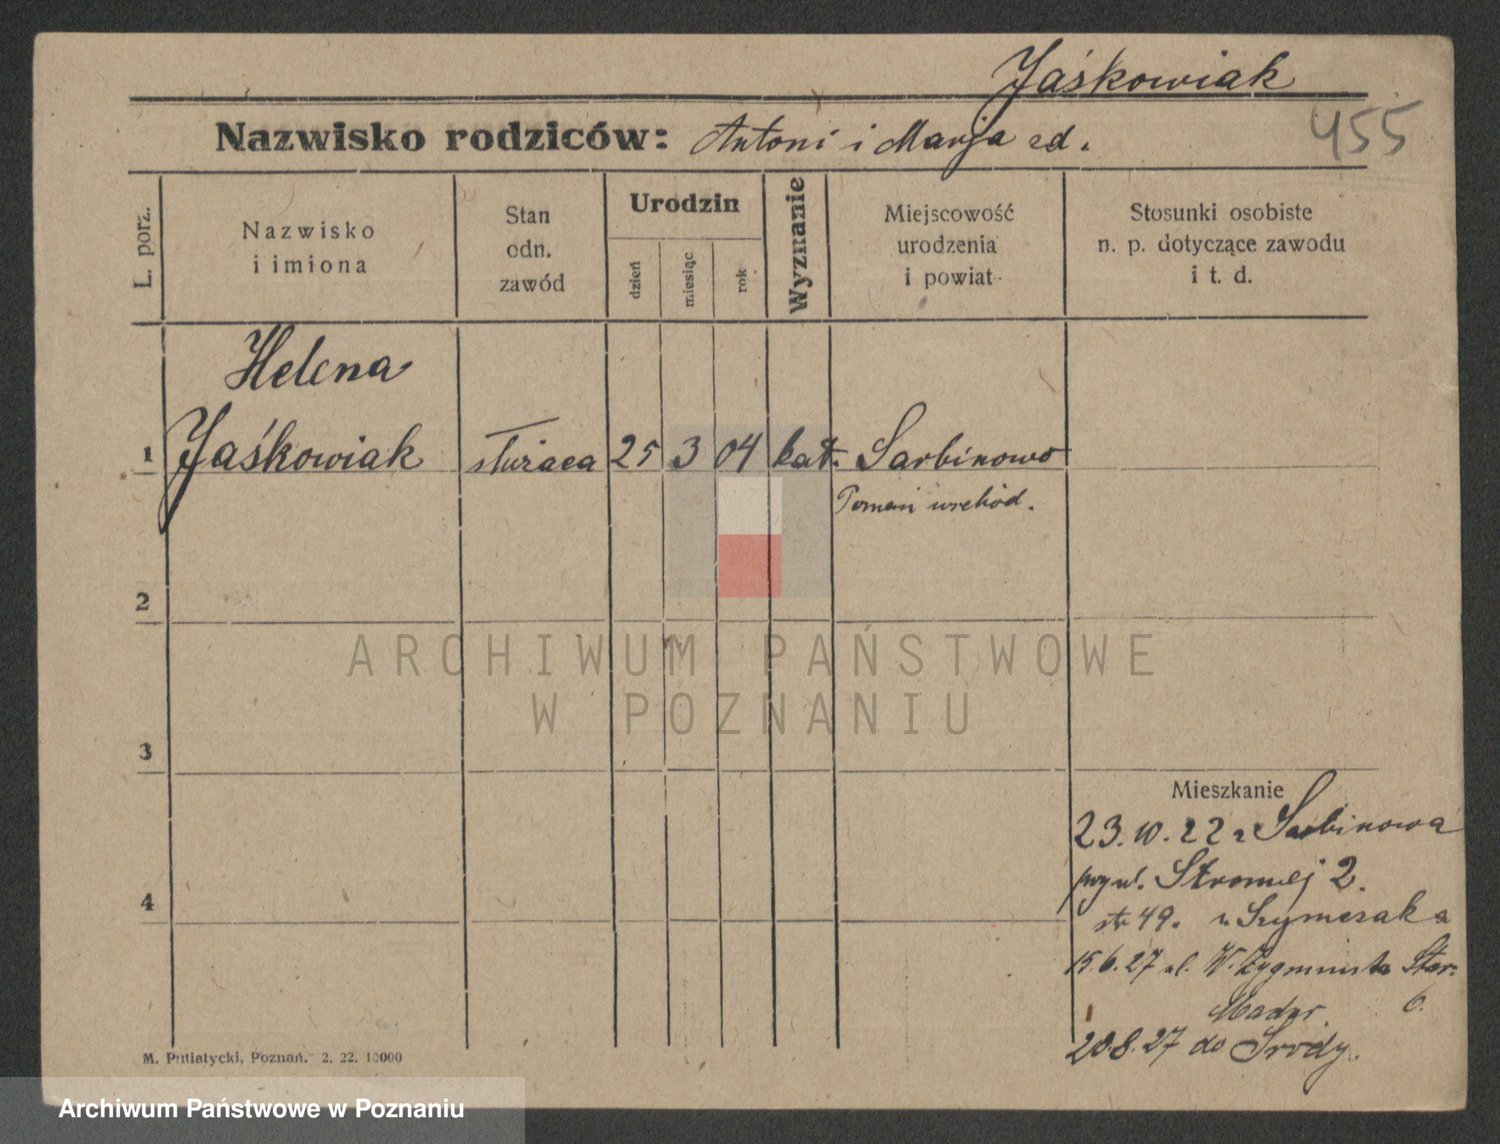 Jaśkowiak
Nazwisko rodziców: Antoni i Marja ed.
455
L. porz.
Nazwisko
i imiona
Stan
odn.
zawód
Urodzin
dzień
miesiąc
rok
Wyznanie
Miejscowość
urodzenia
i powiat
Stosunki osobiste
n. p. dotyczące zawodu
i t. d.
Helena
1 Jaśkowiak służąca 25 3 04 kat. Sarbinowo
Poznań wschód.
2
ARCHIWUM PAŃSTWOWE
W POZNANIU
3
Mieszkanie
23.10.22 z Sarbinowa
przy ul. Stromej 2.
4
str 49. u Szymczaka
15.6.27 ul. W. Zygmunta Star.
6.
20.8.27 do Środy.
M. Putiatycki, Poznań. 2. 22. 10000
Archiwum Państwowe w Poznaniu